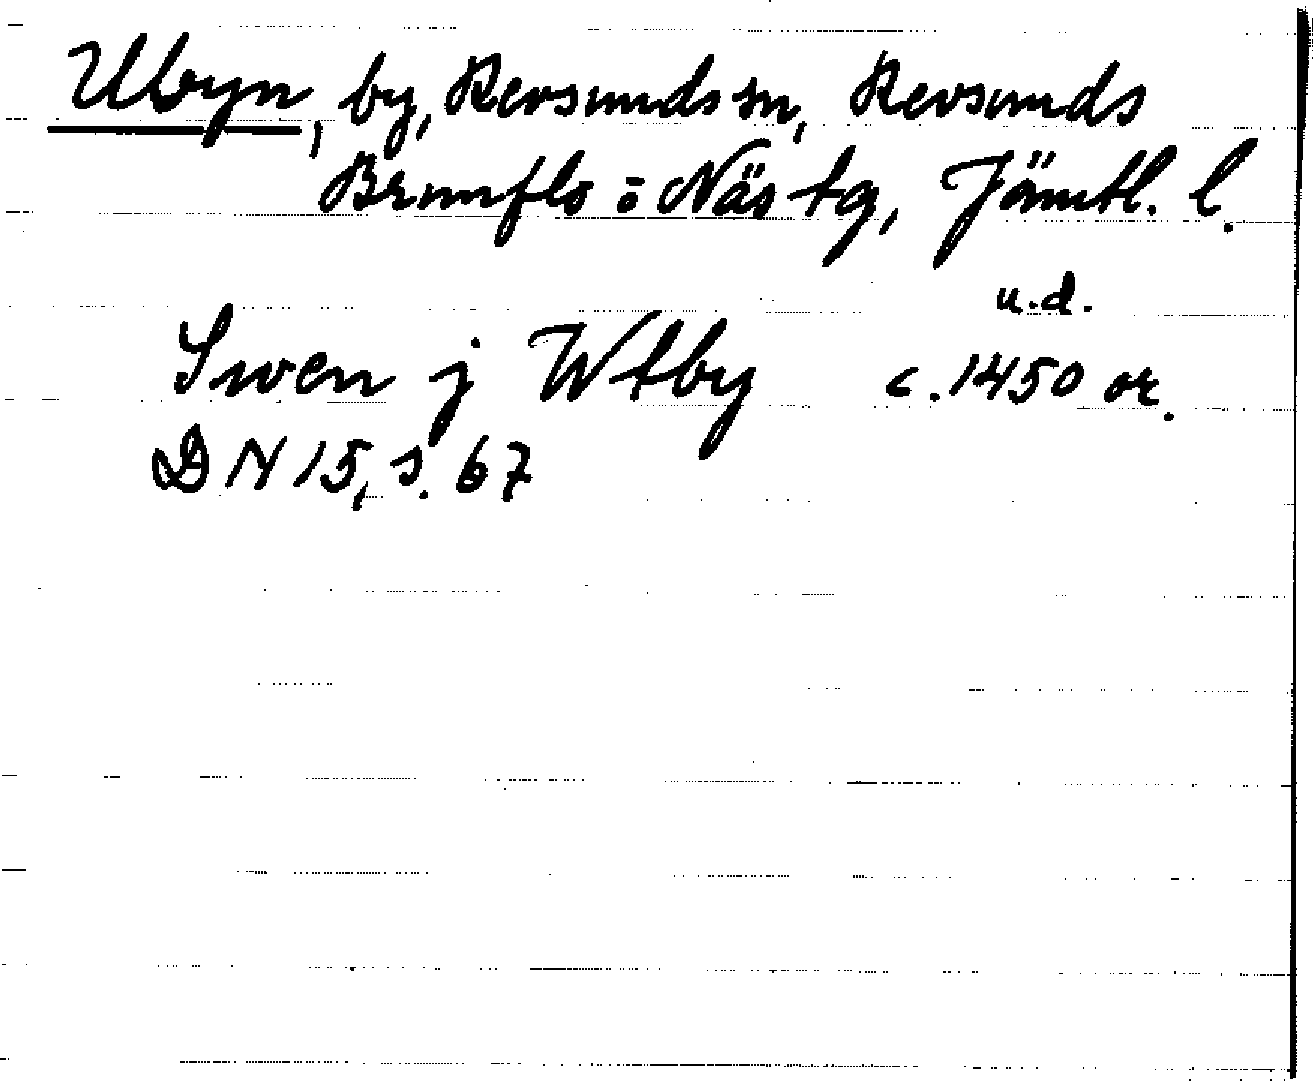 Ubyn, by, Revsunds sn, Revsunds
Brunflo o Näs tg, Jämtl. l.
u.d.
Swen j Wtby c. 1450 or.
DN 15, s. 67